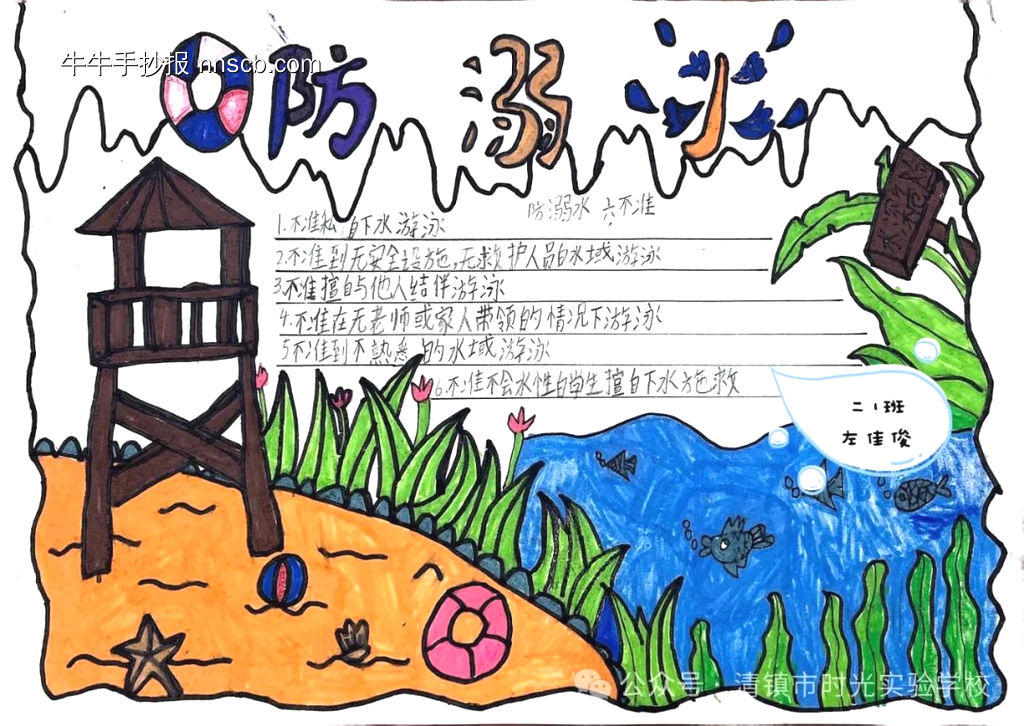 牛牛手抄报 nnscb.com
防溺水
防溺水 六不准
1.不准私自下水游泳
2.不准到无安全设施,无救护人员的水域游泳
3.不准擅自与他人结伴游泳
4.不准在无老师或家人带领的情况下游泳
5不准到不熟悉的水域游泳
6.不准不会水性的学生擅自下水施救
水深危
二1班
左佳俊
公众号·清镇市时光实验学校